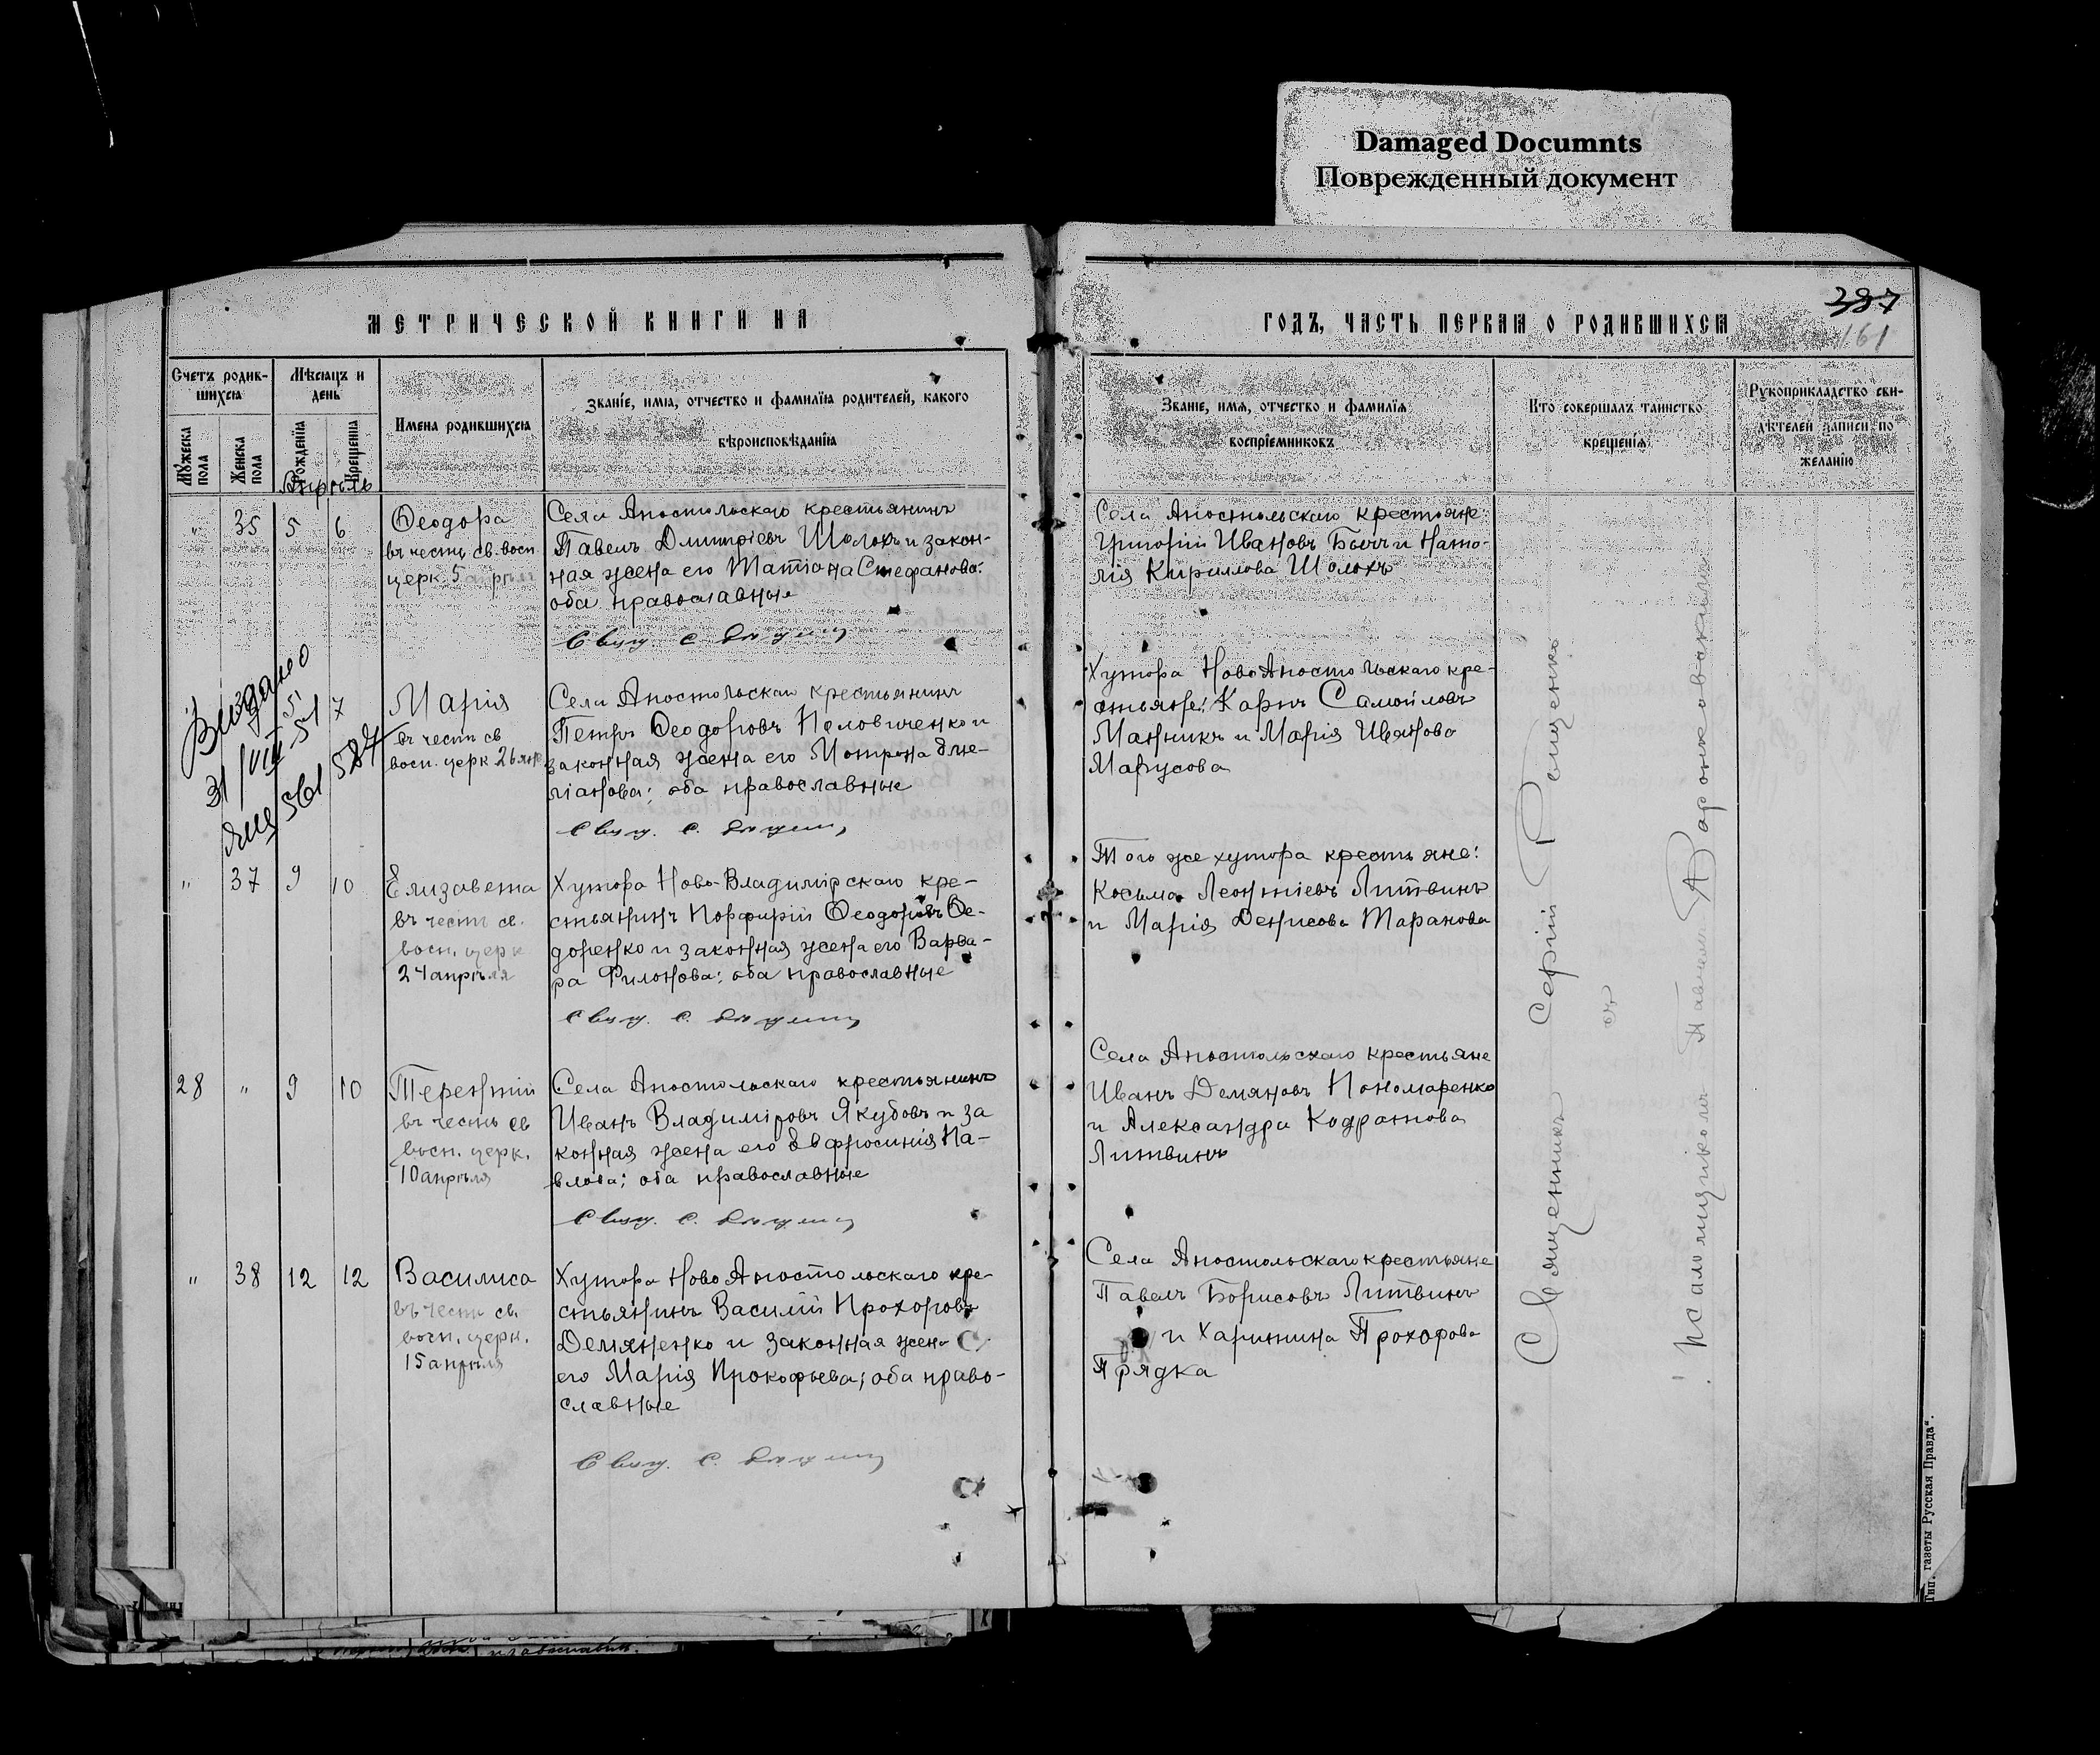 Damaged Documnts
Поврежденный документ
МЕТРИЧЕСКОЙ КНИГИ НА
ГОДЪ, ЧАСТЬ ПЕРВАЯ О РОДИВШИХСЯ
387
161
Счетъ родив-
шихся
Мѣсяцъ и
день
Мужеска
пола
Женска
пола
Рожденія
Крещенія
Имена родившихся
Званіе, имя, отчество и фамилія родителей, какого
вѣроисповѣданія
Званіе, имя, отчество и фамилія
воспріемниковъ
Кто совершалъ таинство
крещенія
Рукоприкладство сви-
дѣтелей записи по
желанію
Апрѣль
" 35 5 6
Ѳеодора
въ честь св. восп.
церк. 5 апрѣл
Села Апостольскаго крестьянинъ
Павелъ Димитріевъ Шолохъ и закон-
ная жена его Татіана Стефанова:
оба православные
Села Апостольскаго крестьяне:
Григорій Ивановъ Бычъ и Ната-
лія Кириллова Шолохъ
Выдано
31/VIII-51
561 587
5 7
Марія
въ честь св
восп. церк 26 янв
Села Апостольскаго крестьянинъ
Петръ Ѳеодоровъ Половиченко и
законная жена его Мотрона Эме-
ліанова; оба православные
Хутора Ново Апостольскаго кре-
стьяне: Карпъ Самойловъ
Манжикъ и Марія Иванова
Марусова
" 37 9 10
Елизавета
въ честь св.
восп. церк
24 апрѣля
Хутора Ново-Владимірскаго кре-
стьянинъ Порфирій Ѳеодоровъ Ѳе-
доренко и законная жена его Варва-
ра Филонова; оба православные
Того же хутора крестьяне:
Косьма Леонтіевъ Литвинъ
и Марія Денисова Таранова
28 " 9 10
Терентій
въ честь св
восп. церк.
10 апрѣля
Села Апостольскаго крестьянинъ
Иванъ Владиміровъ Якубовъ и за
конная жена его Евфросинія Па-
влова; оба православные
Села Апостольскаго крестьяне
Иванъ Демяновъ Пономаренко
и Александра Кодратова
Литвинъ
" 38 12 12
Василиса
въ честь св.
восп. церк.
15 апрѣля
Хутора Ново Апостольскаго кре-
стьянинъ Василій Прохоровъ
Демяненко и законная жена
его Марія Прокофьева; оба право-
славные
Села Апостольскаго крестьяне
Павелъ Борисовъ Литвинъ
и Харитина Прохорова
Прядка
Священникъ Сергій
съ
псаломщикомъ Павломъ
Тип. газеты „Русская Правда“.